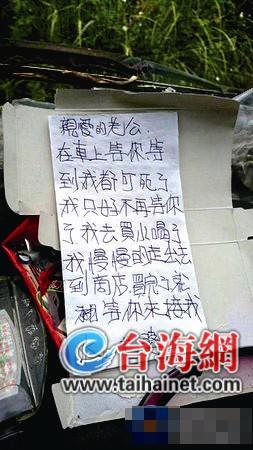 親愛的老公.
在車上等你.等
到我都可死了
我只好不再等你
了我去買心喝了
我慢慢的走去
到商店買完了就
等你来接我
台海網
www.taihainet.com